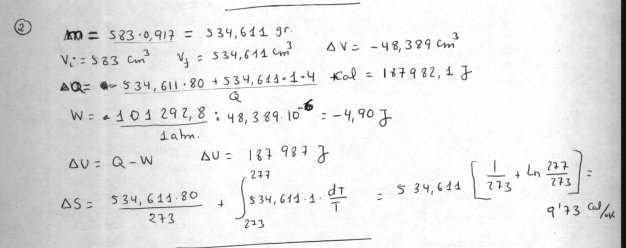 ② m = 583·0,917 = 534,611 gr.
Vi = 583 cm³ Vf = 534,611 cm³ ΔV = -48,389 cm³
ΔQ = 534,611·80 + 534,611·1·4 Kal = 187982,1 J
Q
W = 101292,8 · 48,389·10⁻⁶ = -4,90 J
1 atm.
ΔU = Q - W ΔU = 187987 J
ΔS = 534,611·80 / 273 + ∫₂₇₃²⁷⁷ 534,611·1· dT/T = 534,611 [ 1/273 + Ln 277/273 ] =
9'73 Cal/ºK